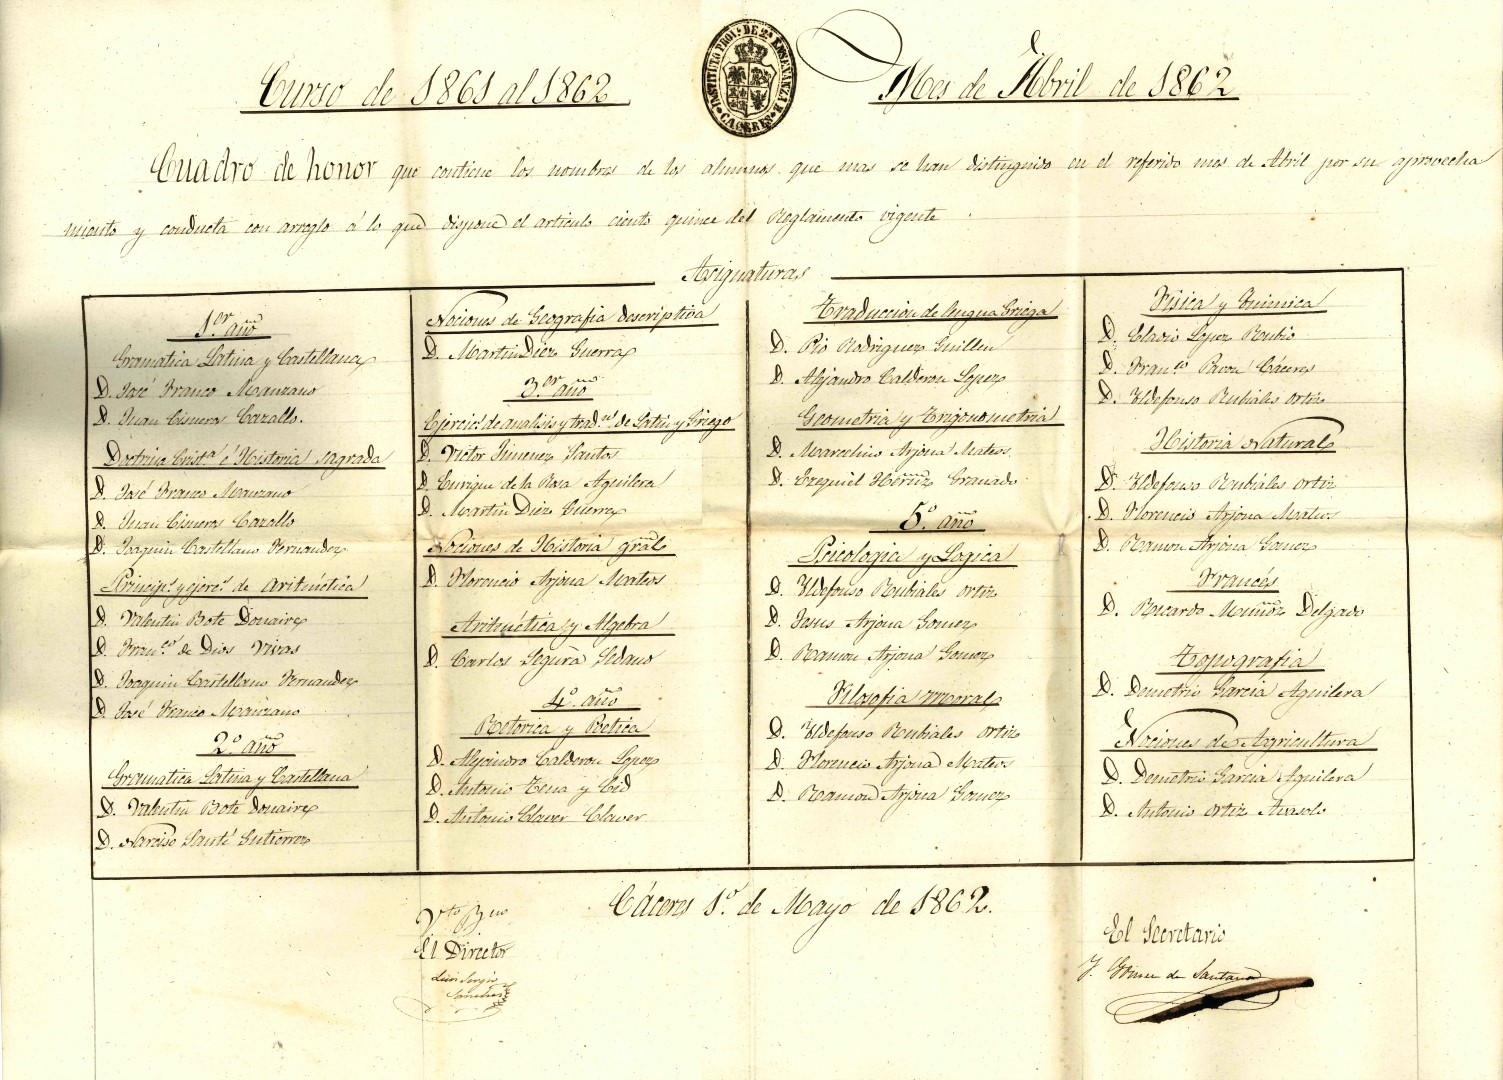 Curso de 1861 al 1862
INSTITUTO PROVL. DE 2ª ENSEÑANZA
CACERES
Mes de Abril de 1862
Cuadro de honor que contiene los nombres de los alumnos que mas se han distinguido en el referido mes de Abril por su aprovecha
miento y conducta con arreglo á lo que dispone el articulo ciento quince del Reglamento vigente.
Asignaturas
1er. año
Gramatica Latina y Castellana
D. José Franco Manzano
D. Juan Cisneros Cazallo.
Doctrina Cristª. é Historia Sagrada
D. José Franco Manzano
D. Juan Cisneros Cazallo
D. Joaquin Castellano Fernandez
Princip.s y ejerc.s de aritmética
D. Valentin Bote Donaire
D. Franco. de Dios Vivas
D. Joaquin Castellano Fernandez
D. José Franco Manzano
2º. año
Gramatica Latina y Castellana
D. Valentin Bote Donaire
D. Narciso Santé Gutierrez
Nociones de Geografia descriptiva
D. Martin Diez Guerra
3er. año
Ejercics. de analisis y tradn. de Latin y Griego
D. Victor Jimenez Santos
D. Enrique de la Rosa Aguilera
D. Martin Diez Guerra
Nociones de Historia gral
D. Florencio Arjona Mateos
Aritmética y Algebra
D. Carlos Segura Sedano
4º. año
Retorica y Poética
D. Alejandro Calderon Lopez
D. Antonio Tena y Cid
D. Antonio Claver Claver
Traduccion de lengua Griega
D. Pio Rodriguez Guillen
D. Alejandro Calderon Lopez
Geometria y Trigonometria
D. Marcelino Arjona Mateos
D. Ezequiel Hernz Granado
5º. año
Psicologia y Logica
D. Yldefonso Rubiales Ortiz
D. Jesus Arjona Gomez
D. Ramon Arjona Gomez
Filosofia moral
D. Yldefonso Rubiales Ortiz
D. Florencio Arjona Mateos
D. Ramon Arjona Gomez
Fisica y Quimica
D. Eladio López Rubio
D. Franco Pavon Cáceres
D. Yldefonso Rubiales Ortiz
Historia Natural
D. Yldefonso Rubiales Ortiz
D. Florencio Arjona Mateos
D. Ramon Arjona Gomez
Francés
D. Ricardo Muñoz Delgado
Topografia
D. Demetrio Garcia Aguilera
Nociones de Agricultura
D. Demetrio Garcia Aguilera
D. Antonio Ortiz
Cáceres 1º. de Mayo de 1862.
Vto Bno
El Director
Luis Sergio
Sanchez
El Secretario
J. Gomez de Santana